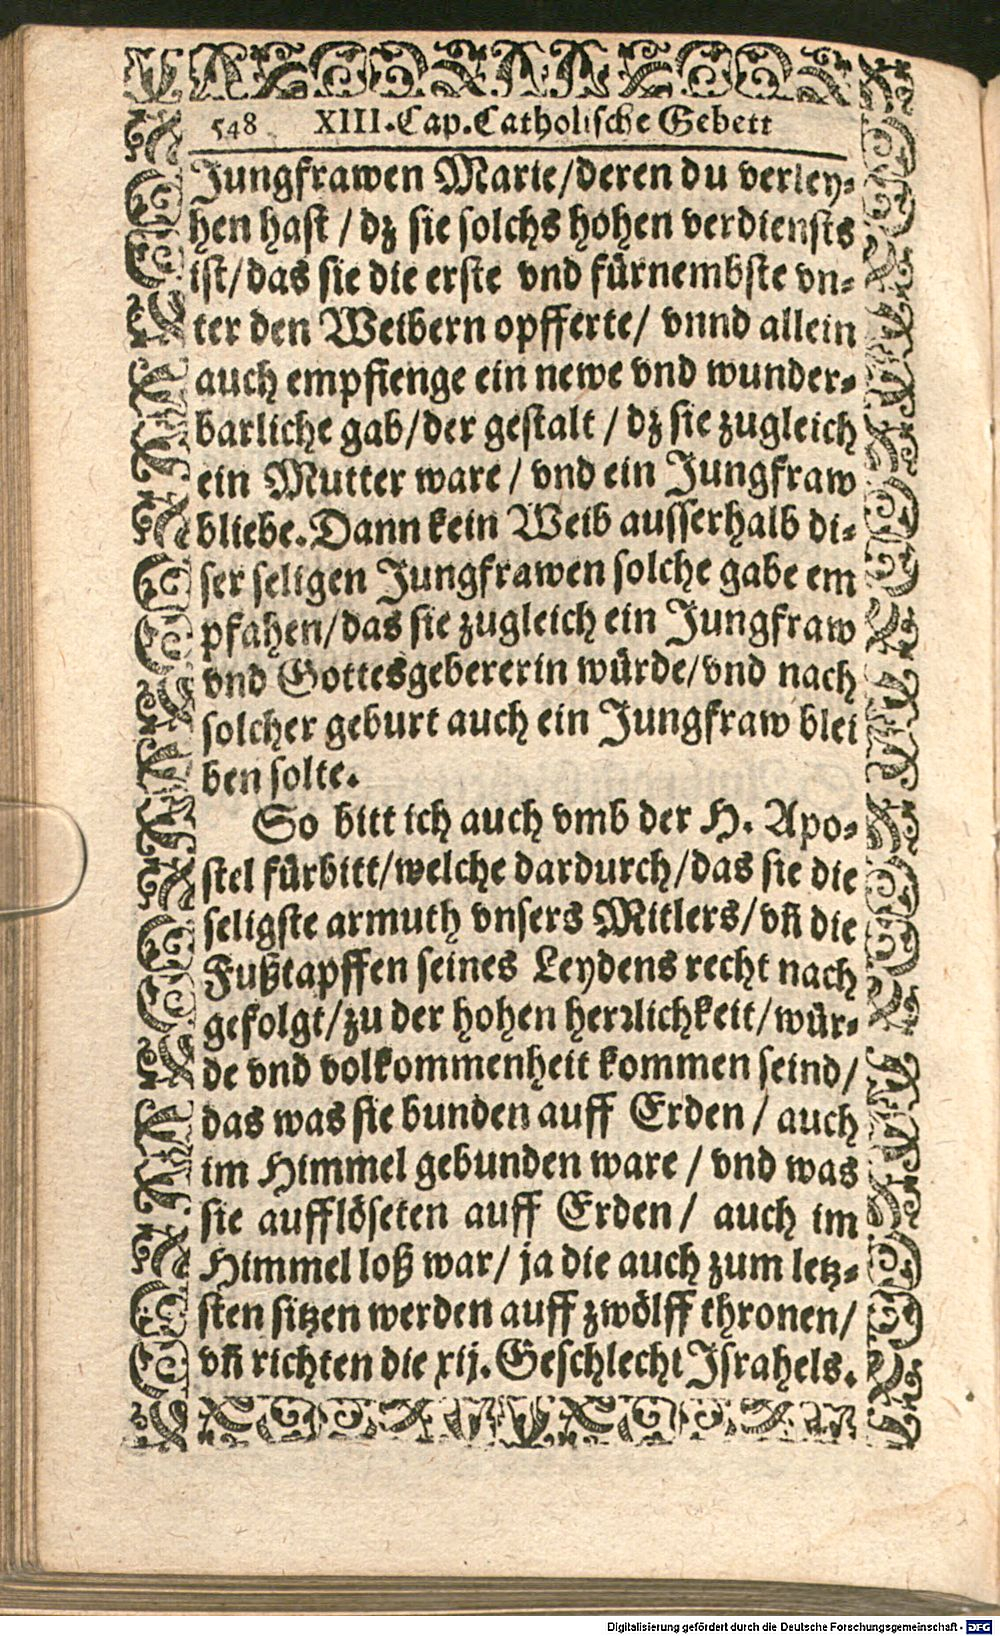 548 XIII.Cap.Catholische Gebett
Jungfrawen Marie/deren du verley-
hen hast / dz sie solchs hohen verdiensts
ist/das sie die erste vnd fürnembste vn-
ter den Weibern opfferte/ vnnd allein
auch empfienge ein newe vnd wunder-
barliche gab/der gestalt / dz sie zugleich
ein Mutter ware / vnd ein Jungfraw
bliebe. Dann kein Weib ausserhalb di-
ser seligen Jungfrawen solche gabe em
pfahen/das sie zugleich ein Jungfraw
vnd Gottesgebererin würde/vnd nach
solcher geburt auch ein Jungfraw blei
ben solte.
So bitt ich auch vmb der H. Apo-
stel fürbitt/welche dardurch/das sie die
seligste armuth vnsers Mitlers/vñ die
Fußtapffen seines Leydens recht nach
gefolgt/zu der hohen herꝛlichkeit/wür-
de vnd volkommenheit kommen seind/
das was sie bunden auff Erden / auch
im Himmel gebunden ware / vnd was
sie aufflöseten auff Erden / auch im
Himmel loß war/ ja die auch zum letz-
sten sitzen werden auff zwölff thronen/
vñ richten die xij. Geschlecht Israhels.
Digitalisierung gefördert durch die Deutsche Forschungsgemeinschaft - DFG